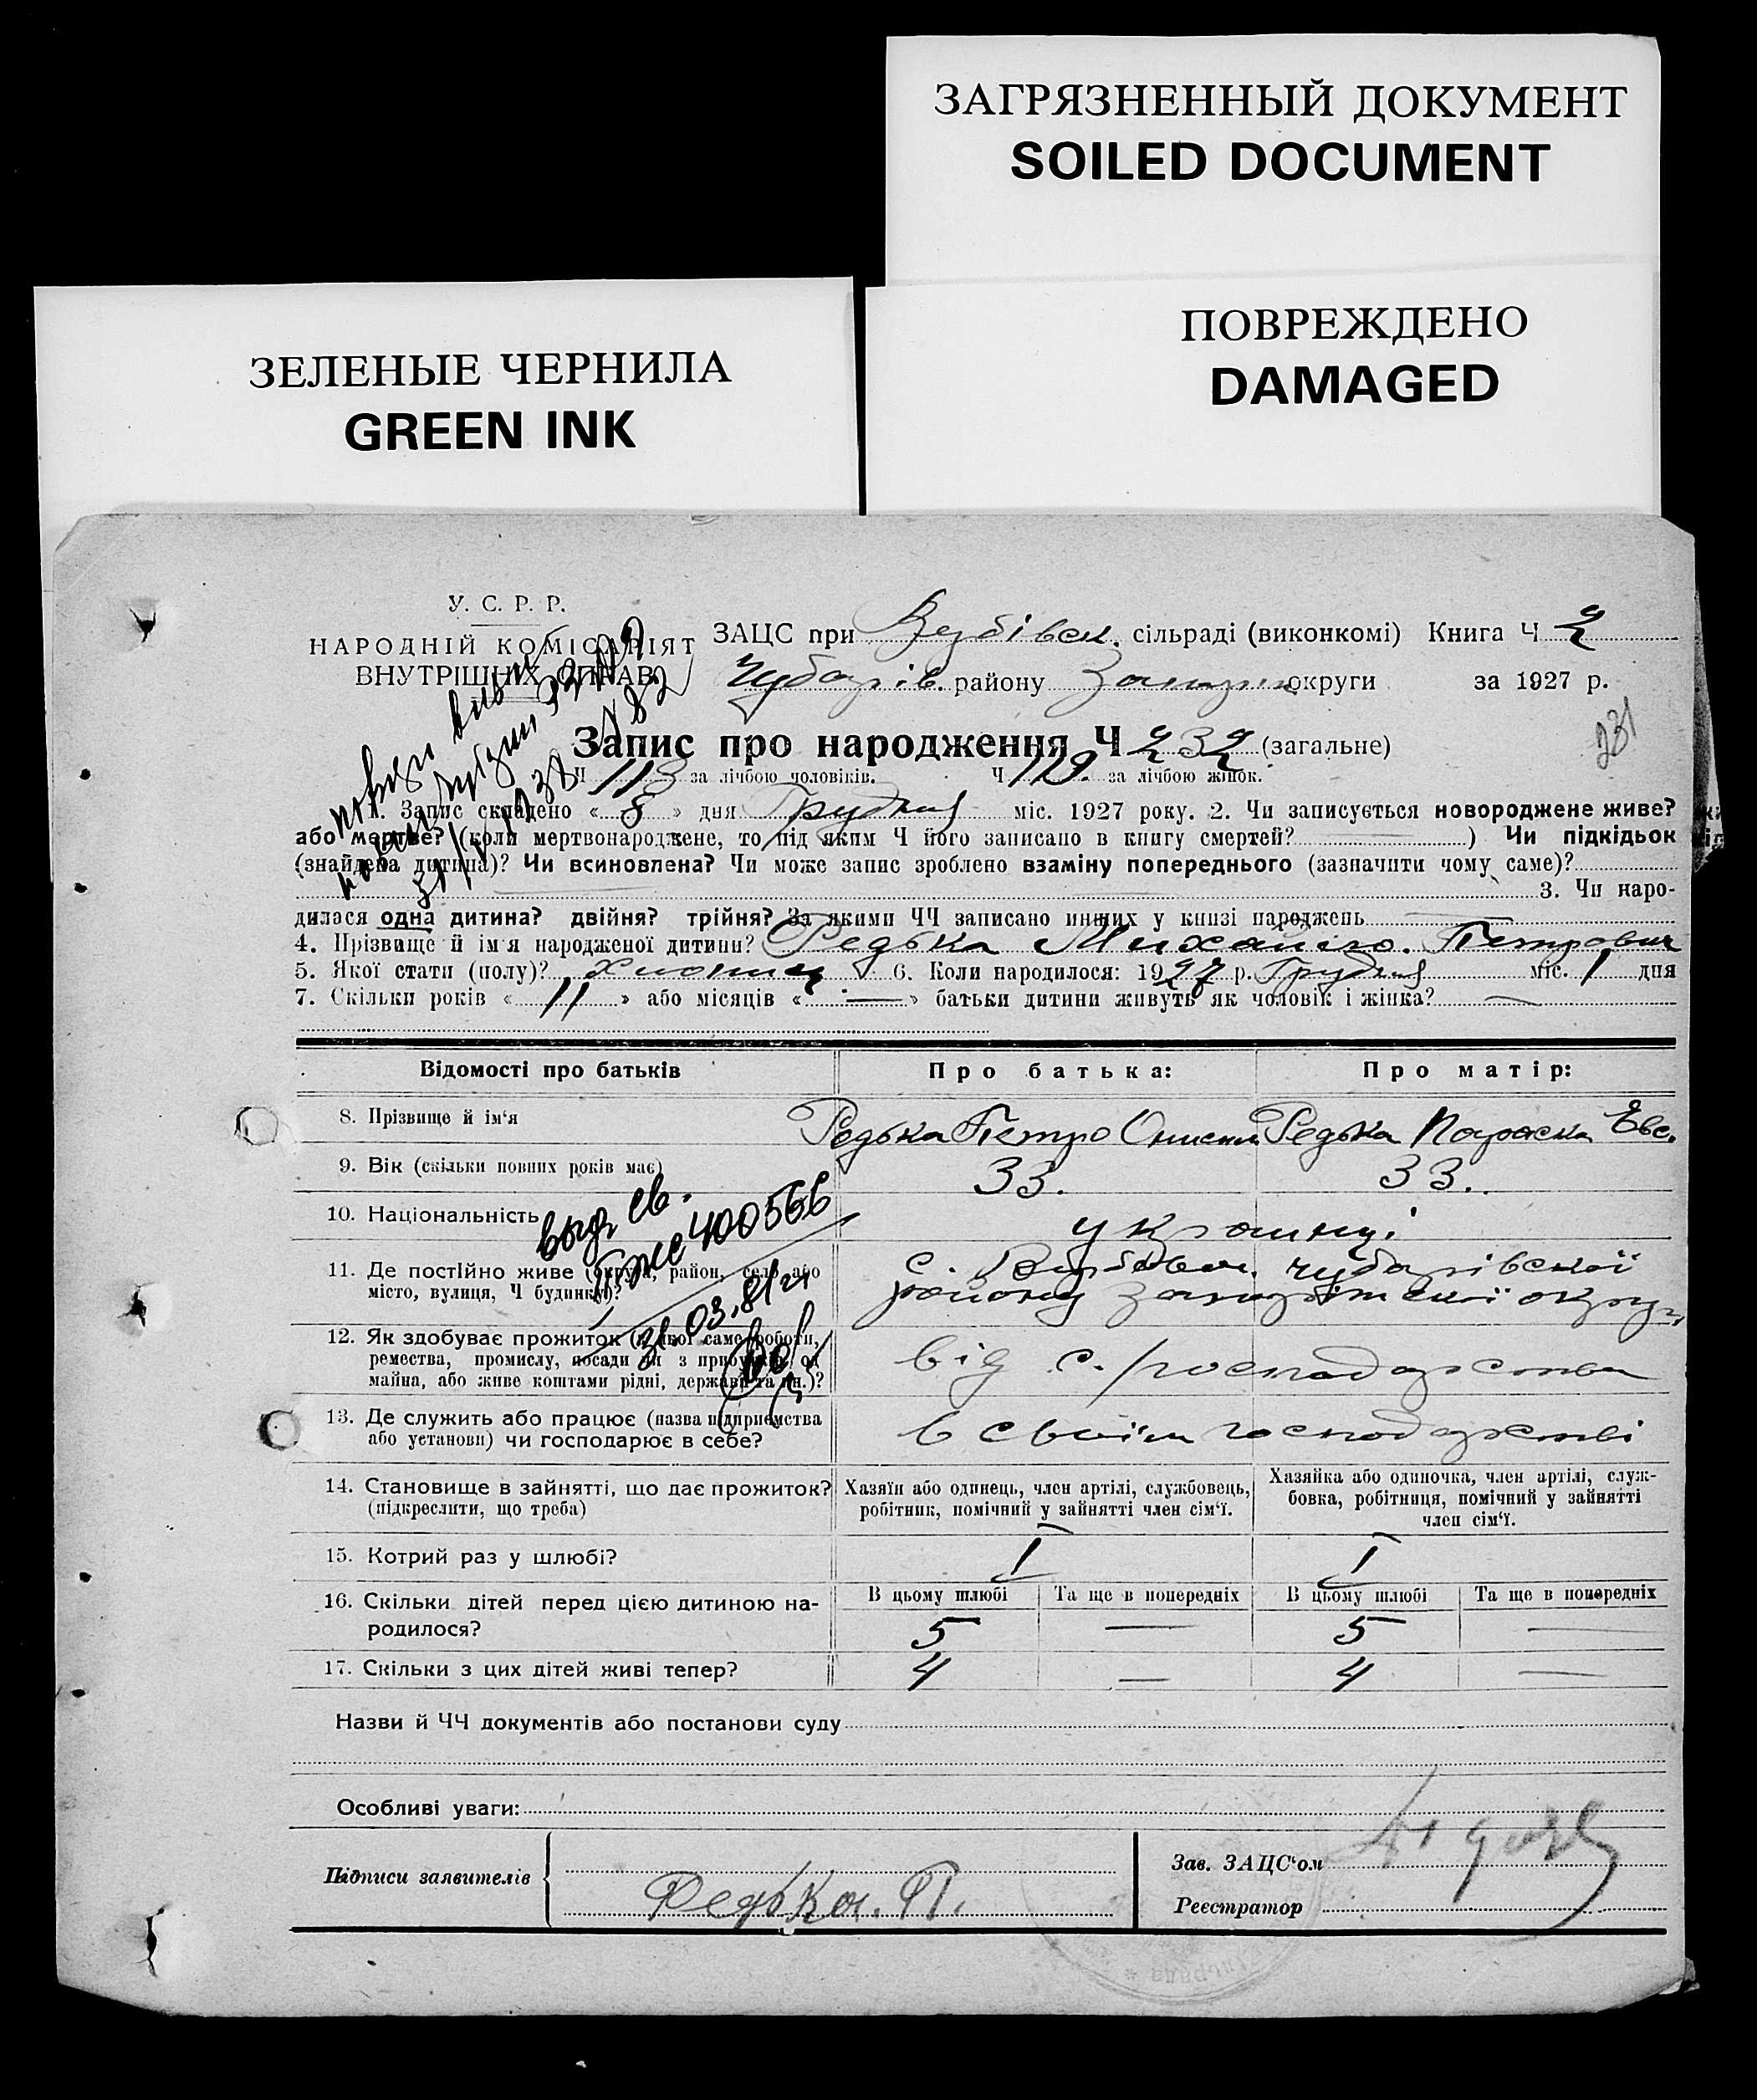 ЗАГРЯЗНЕННЫЙ ДОКУМЕНТ
SOILED DOCUMENT
ПОВРЕЖДЕНО
DAMAGED
ЗЕЛЕНЫЕ ЧЕРНИЛА
GREEN INK
У. С. Р. Р.
НАРОДНІЙ КОМІСАРІЯТ
ВНУТРІШНІХ СПРАВ.
ЗАЦС при Вербівськ. сільраді (виконкомі) Книга Ч 2
Чубарів. району округи за 1927 р.
231
Запис про народження Ч 232 (загальне)
Ч 113 за лічбою чоловіків. Ч 119. за лічбою жінок.
1. Запис складено « 8 » дня Грудня міс. 1927 року. 2. Чи записується новороджене живе?
або мертве? (коли мертвонароджене, то під яким Ч його записано в книгу смертей? ) Чи підкідьок
(знайдена дитина)? Чи всиновлена? Чи може запис зроблено взаміну попереднього (зазначити чому саме)?
3. Чи наро-
дилася одна дитина? двійня? трійня? За якими ЧЧ записано инших у книзі народжень
4. Прізвище й ім'я народженої дитини? Редька Михайло. Петрович
5. Якої стати (полу)? Хлопець 6. Коли народилося: 1927 р. Грудня міс. 1 дня
7. Скільки років « 11 » або місяців « — » батьки дитини живуть як чоловік і жінка? —
Відомості про батьків Про батька: Про матір:
8. Прізвище й ім'я Редька Петро Редька Параска Евс.
9. Вік (скільки повних років має) 33. 33.
10. Національність українці
выд. св.
400566
11. Де постійно живе (округа, район, село або
місто, вулиця, Ч будинку)?
с. Вербове. Чубарівської
району Запорізької округи
31.03.81
12. Як здобуває прожиток (з якої саме роботи,
ремества, промислу, посади чи з прибутків од
майна, або живе коштами рідні, держави та ин.)?
від с./господарства
13. Де служить або працює (назва підприємства
або установи) чи господарює в себе?
в своїм господарстві
14. Становище в зайнятті, що дає прожиток?
(підкреслити, що треба)
Хазяїн або одинець, член артілі, службовець,
робітник, помічний у зайнятті член сім'ї.
Хазяйка або одиночка, член артілі, служ-
бовка, робітниця, помічний у зайнятті
член сім'ї.
15. Котрий раз у шлюбі? I I
16. Скільки дітей перед цією дитиною на-
родилося?
В цьому шлюбі Та ще в попередніх В цьому шлюбі Та ще в попередніх
5 — 5 —
17. Скільки з цих дітей живі тепер? 4 — 4 —
Назви й ЧЧ документів або постанови суду
Особливі уваги:
Підписи заявителів
Редька. П.
Зав. ЗАЦС'ом
Реєстратор